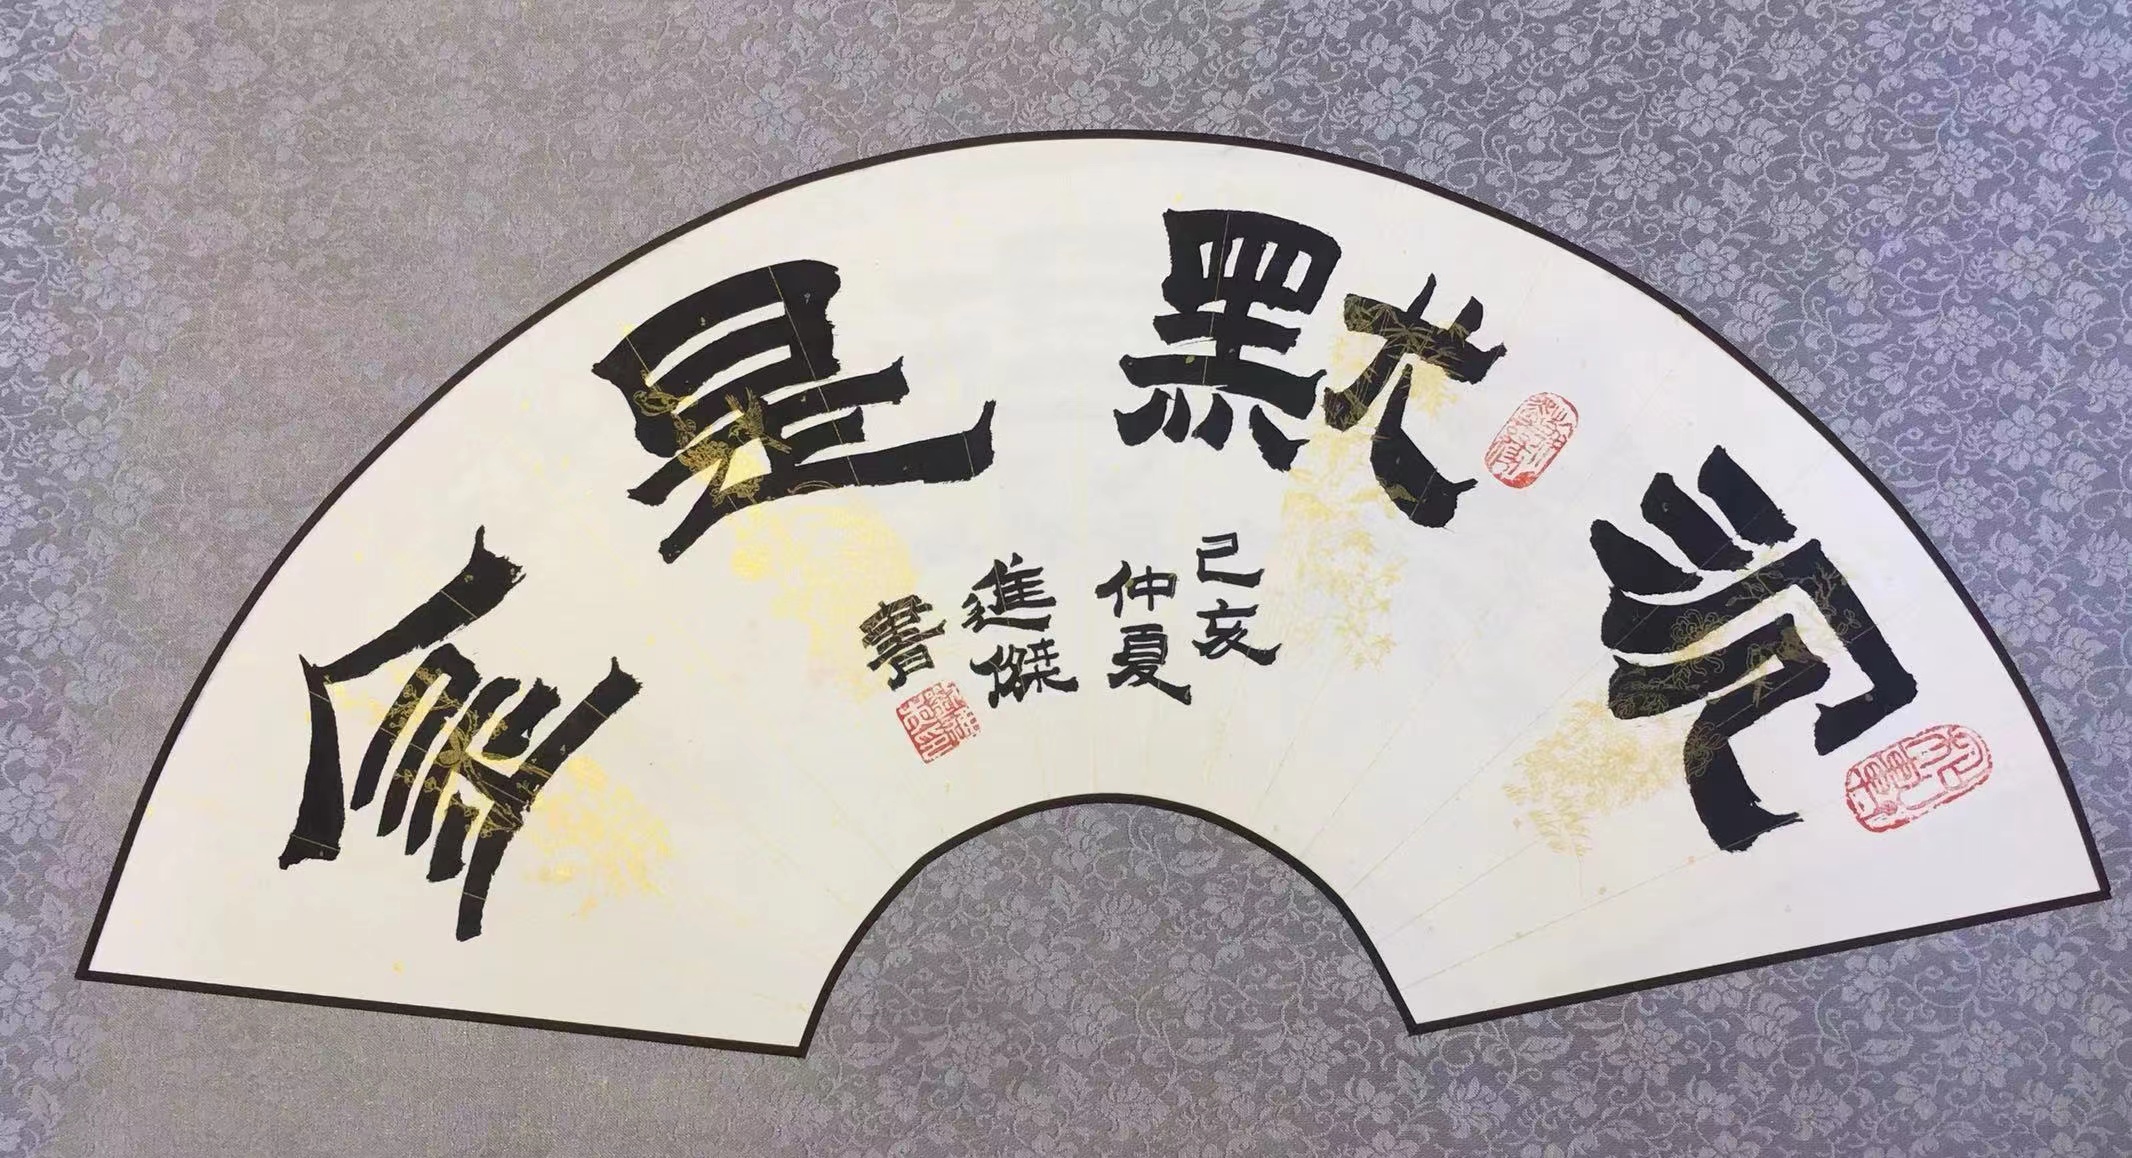 沉默是金
己亥
仲夏
進傑
書